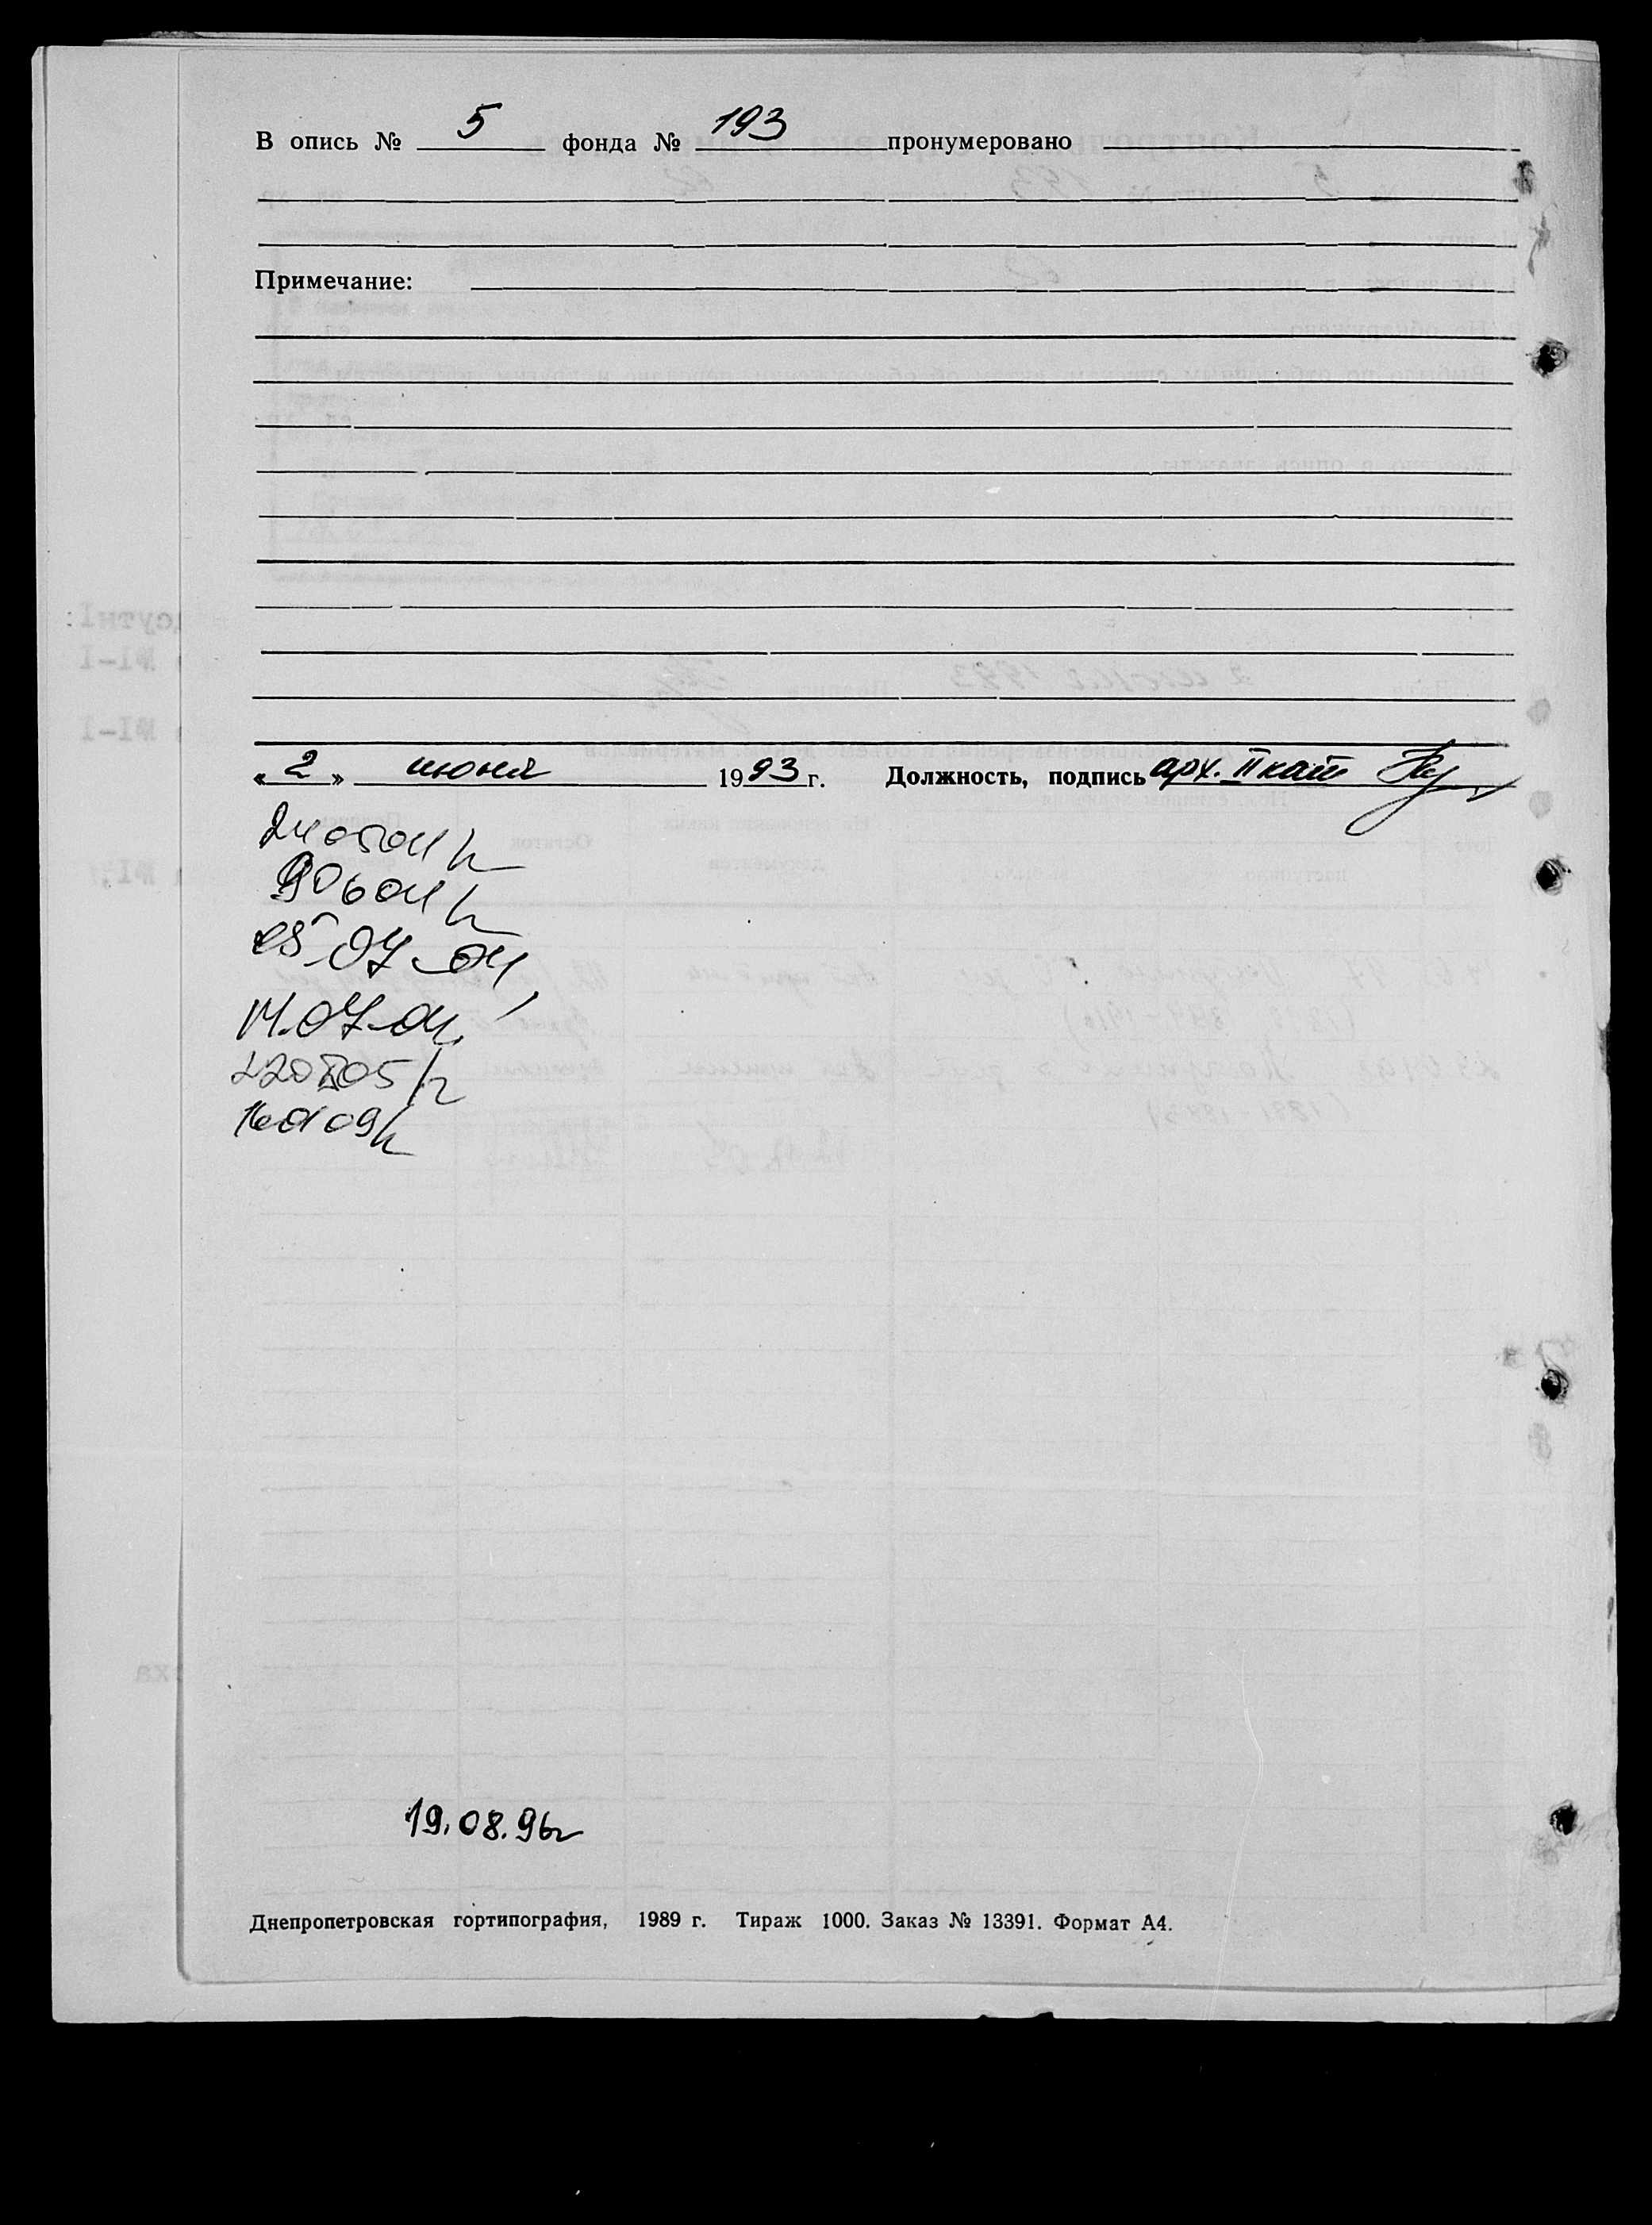 В опись № 5 фонда № 193 пронумеровано
Примечание:
« 2 » июня 1993 г. Должность, подпись арх. II кат
240504
90604
05-07-04,
14.07-04.
160109
19.08.96г
Днепропетровская гортипография, 1989 г. Тираж 1000. Заказ № 13391. Формат А4.